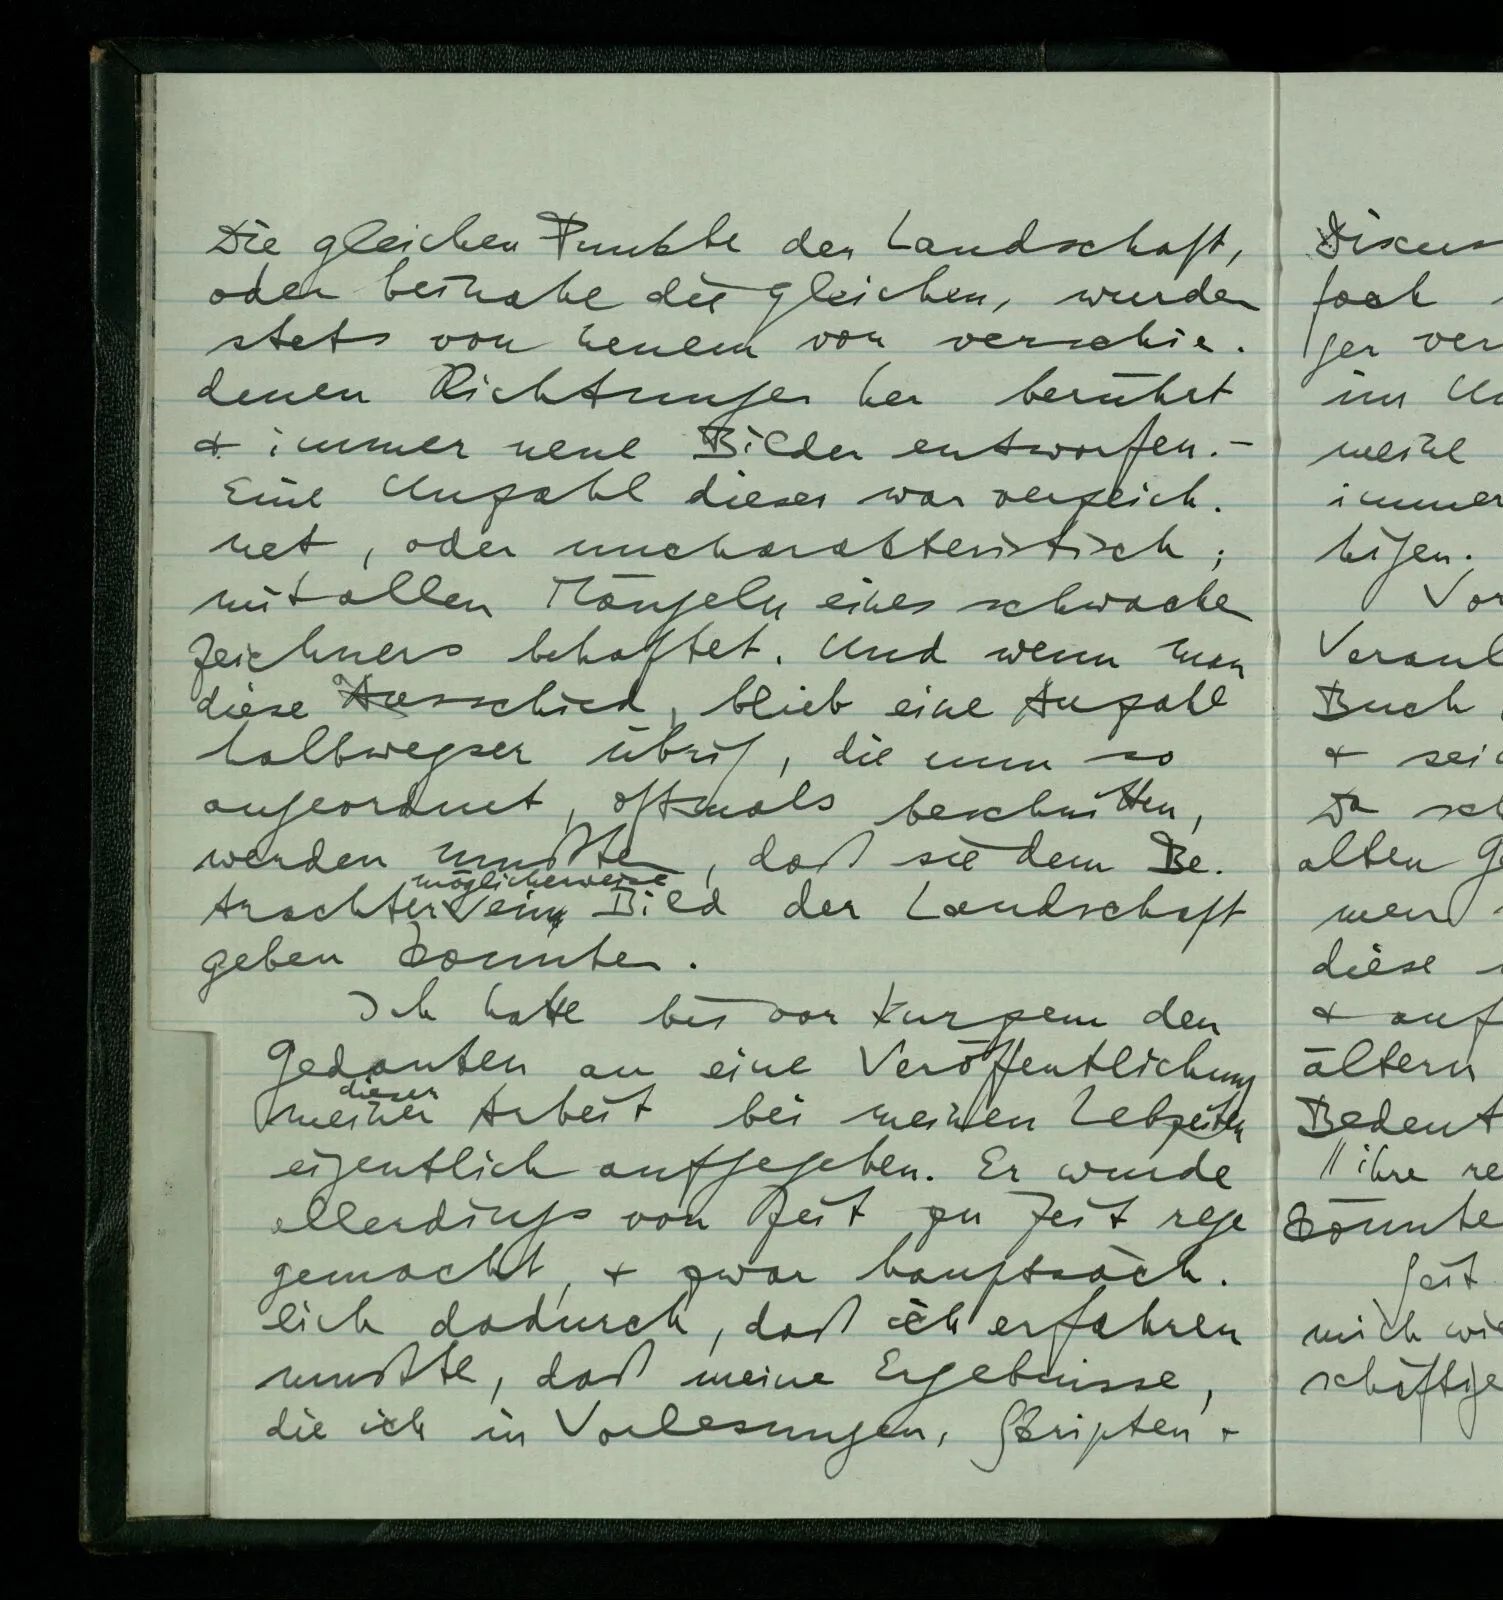 Die gleichen Punkte der Landschaft,
oder beinahe die gleichen, wurden
stets von neuem von verschie-
denen Richtungen her berührt
& immer neue Bilder entworfen. –
Eine Unzahl dieser war verzeich-
net, oder uncharakteristisch;
mit allen Mängeln eines schwachen
Zeichners behaftet. Und wenn man
diese Ausschied, blieb eine Anzahl
halbwegser übrig, die nun so
angeordnet, oftmals beschnitten,
werden mußten, daß sie dem Be-
möglicherweise
trachter ein Bild der Landschaft
geben konnten.
Ich hatte bis vor Kurzem den
Gedanken an eine Veröffentlichung
dieser
meiner Arbeit bei meinen Lebzeiten
eigentlich aufgegeben. Er wurde
allerdings von Zeit zu Zeit rege
gemacht, & zwar hauptsäch-
lich dadurch, daß ich erfahren
mußte, daß meine Ergebnisse,
die ich in Vorlesungen, Skripten &
Discus
fach
ger ver
im
meine
immer
higen.
Vor
Veranl
Buch
& sei
Da sch
alten G
men
diese
& auf
ältern
Bedeut
ihre re
könnte
Seit
mich wie
schäftige